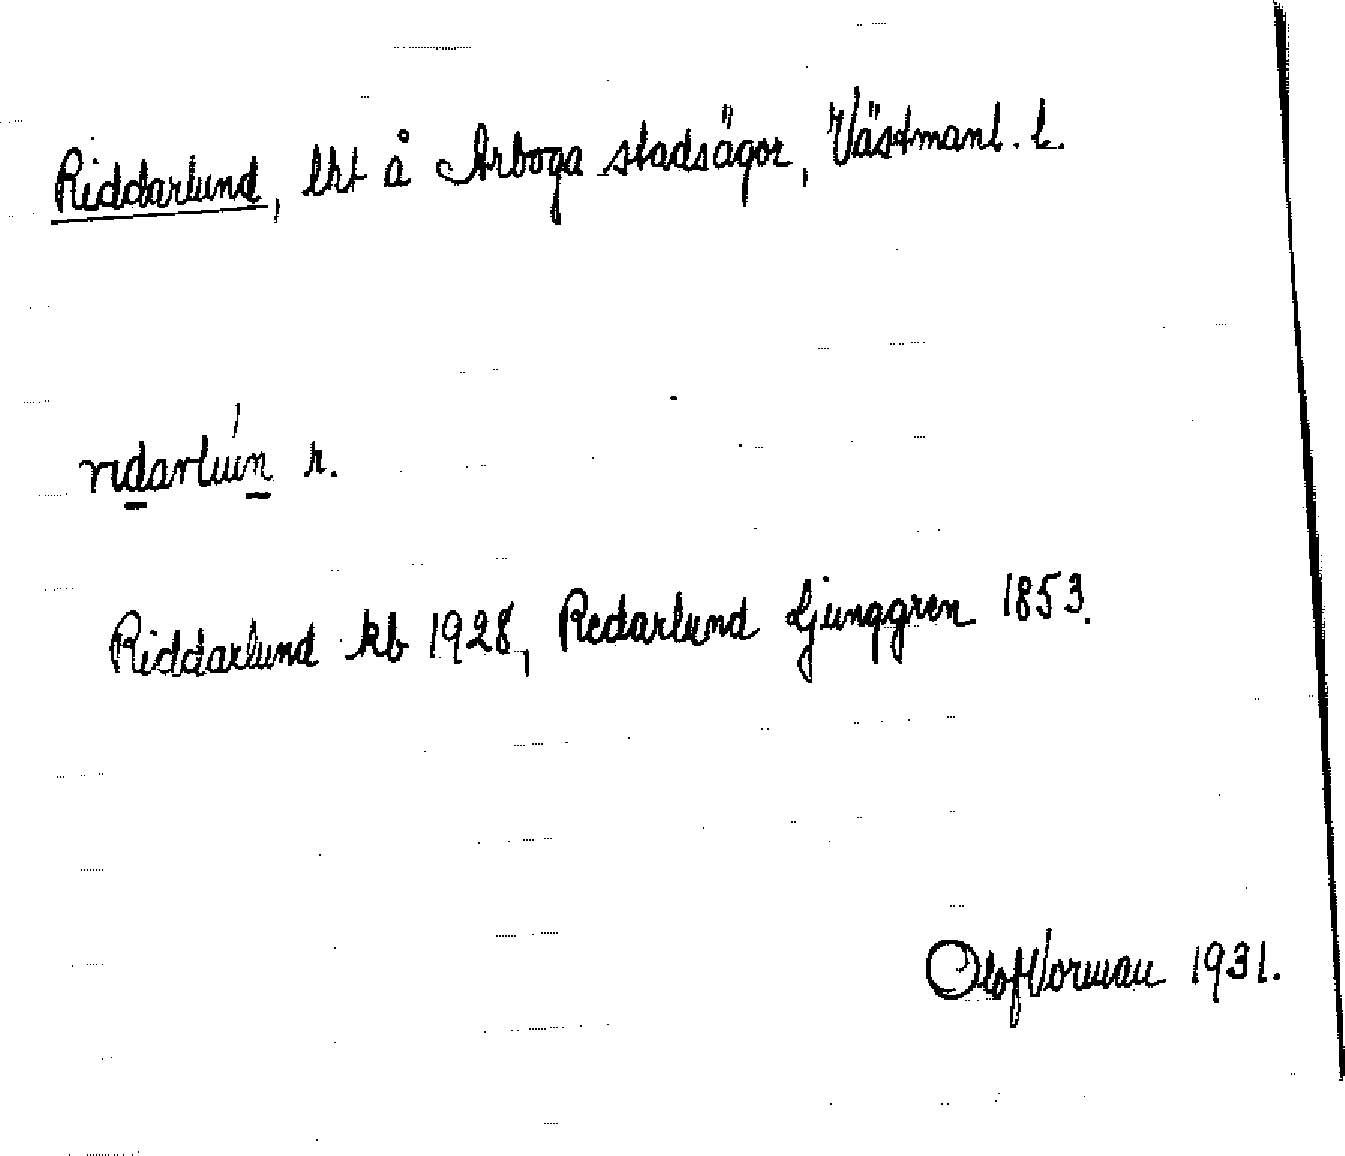 Riddarlund, lht å Arboga stadsägor, Västmanl. l.
rıdarluń r.
Riddarlund kb 1928, Redarlund Ljunggren 1853.
Olof Vorman 1931.